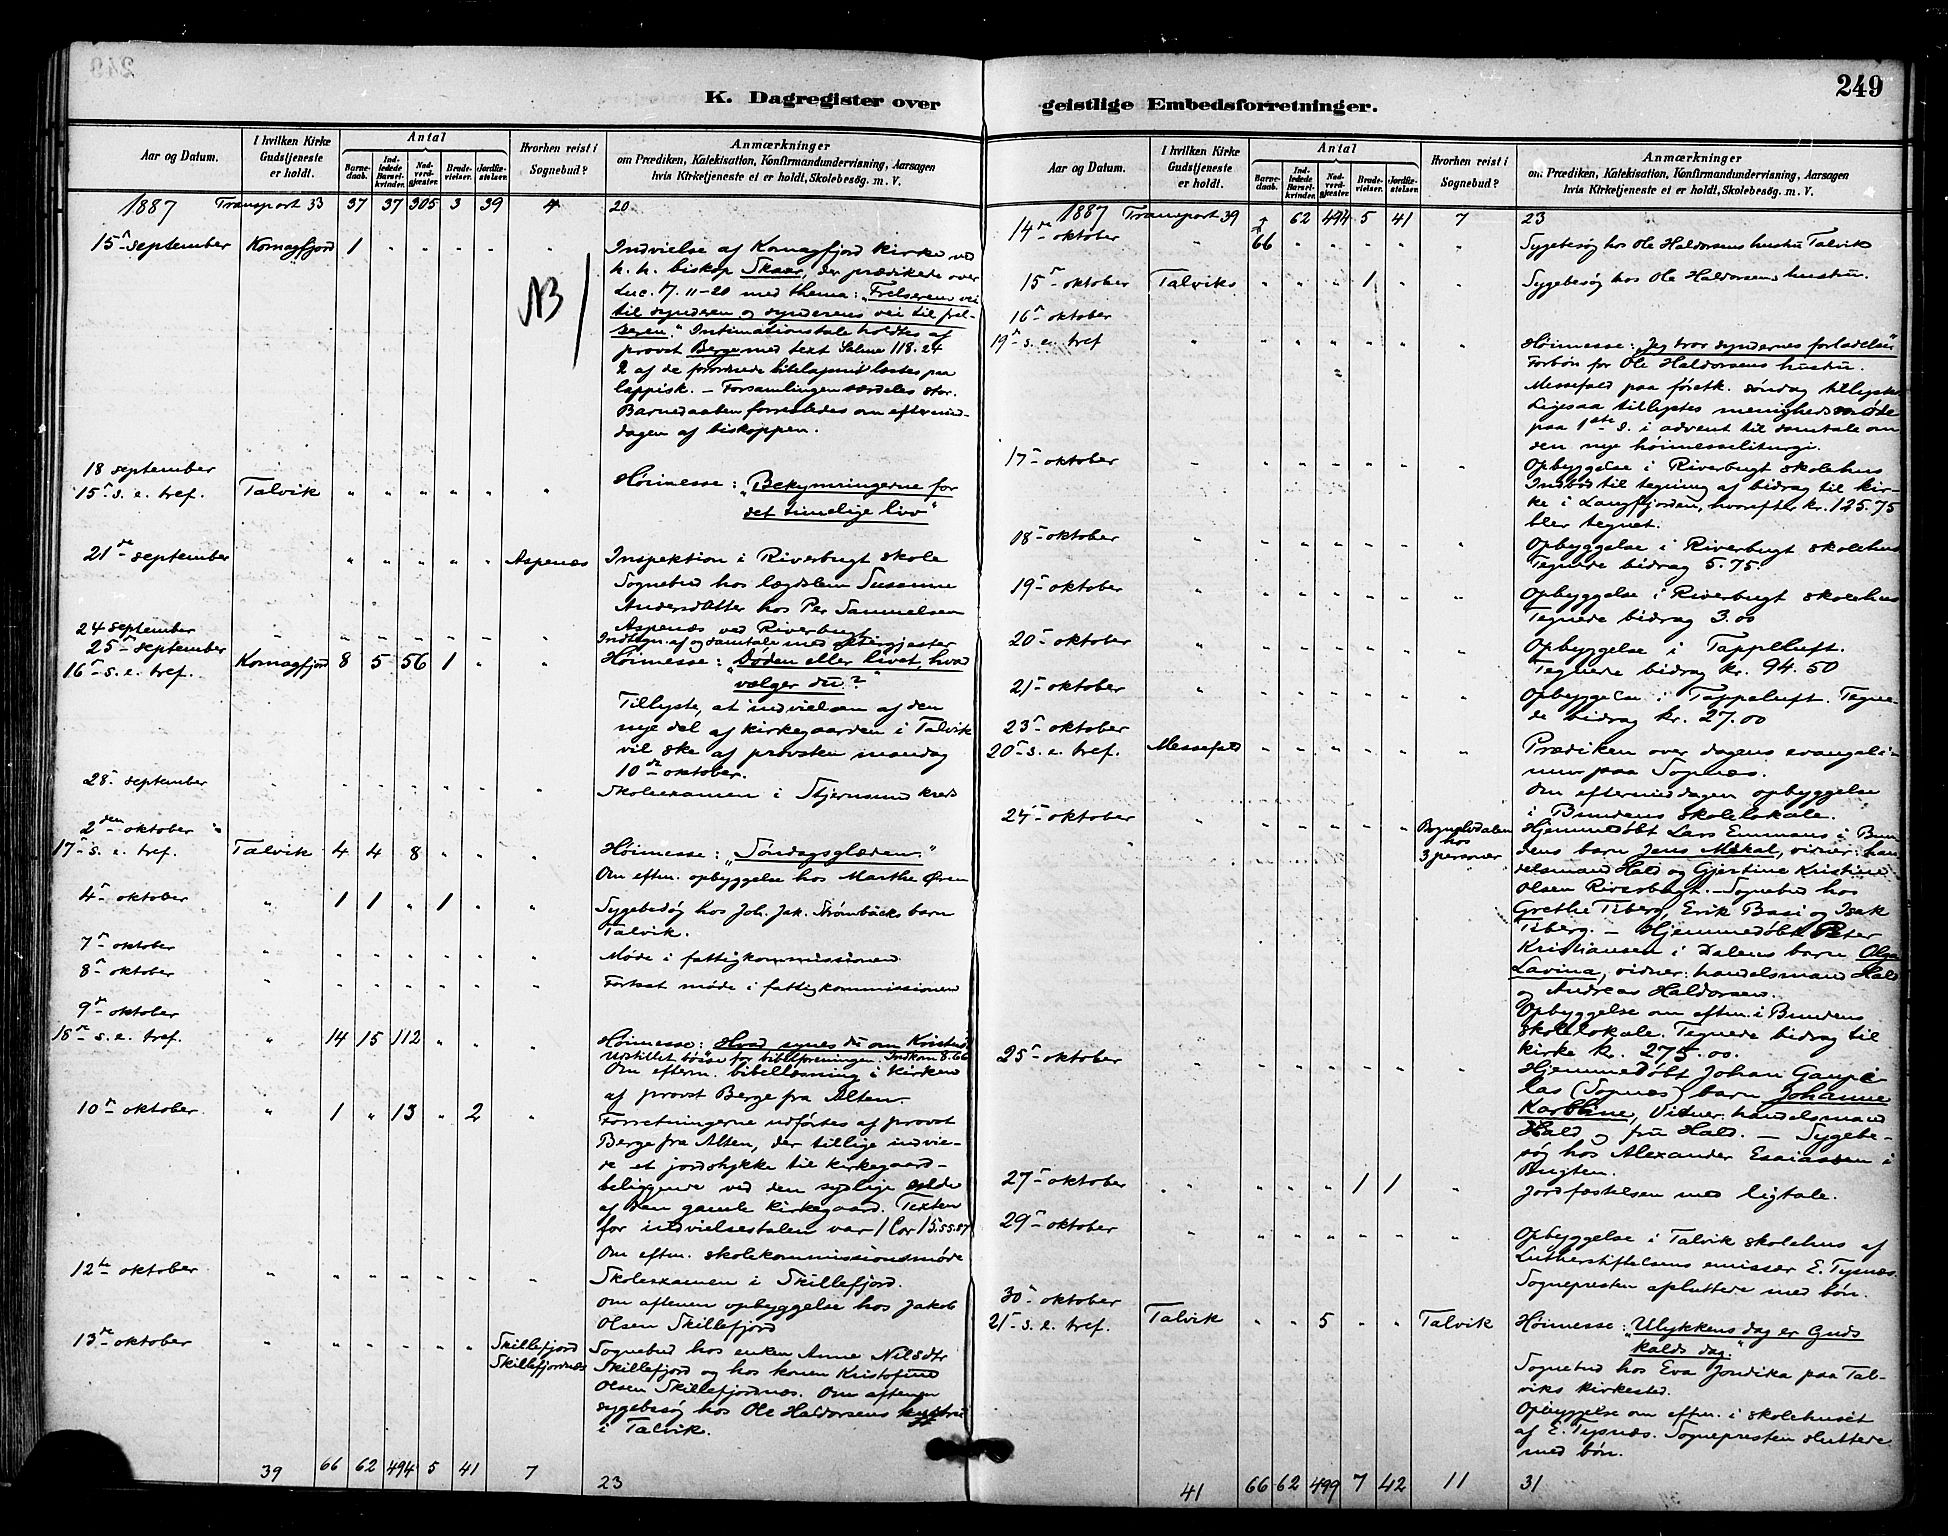 249
K. Dagregister over geistlige Embedsforretninger.
Aar og Datum.
I hvilken Kirke Gudstjeneste er holdt.
Antal
Barnedaab.
Indledede Barselkvinder.
Nadverdgjester.
Brudevielser.
Jordfæstelser.
Hvorhen reist i Sognebud?
Anmærkninger
om Prædiken, Katekisation, Konfirmandundervisning, Aarsagen
hvis Kirketjeneste ei er holdt, Skolebesøg. m. V.
1887 Transport 33 37 37 305 3 39 4 20
15 september Komagfjord 1 " " " " "
NB
Indvielse af Komagfjord kirke ved
h. h. biskop Skaar, der prædikede over
Luc. 17. 11-20 med thema: "Frelserens vei
til synderen og synderens vei til frel-
seren." Intimationstale holdtes af
provst Berge med text Salme 118.24
2 af de forordnede bibelapni læstes paa
lappisk. - Forsamlingen særdeles stor.
Barnedaaben forrettedes om eftermid-
dagen af biskoppen.
18 september
15 s. e. tref. Talvik " " " " " "
Høimesse: "Bekymringerne for
det timelige liv"
21de september " " " " " Aspenæs
Inspektion i Riverbugt skole
Sognebud hos lægdslem Susanne
Andersdatter hos Per Samuelsen
Aspenæs ved Riverbugt
24 september
Indtegn. af og samtale med altergjester
25 september
16 s. e. tref. Komagfjord 8 5 56 1 " "
Høimesse: "Døden eller livet, hvad
vælger du?"
Tillyste, at indvielsen af den
nye del af kirkegaarden i Talvik
vil ske af provsten mandag
10de oktober.
28 september " " " " " "
Skoleexamen i Stjernsund kreds
2den oktober
17 s. e. tref. Talvik 4 4 8 " " "
Høimesse: "Søndagsglæden."
Om eftm. opbyggelse hos Marthe Øren
4 oktober " 1 1 " 1 " "
Sygebesøg hos Joh. Jak. Strømbäcks barn
Talvik.
7 oktober " " " " " " "
Møde i fattigkommissionen
8 oktober " " " " " " "
Fortsat møde i fattigkommissionen
9 oktober
18 s. e. tref. " 14 15 112 " " "
Høimesse: Hvad synes du om Kristus
Opstillet bøsse for bibelforeningen. Indkom 8.66
Om efterm. bibellæsning i kirken
af provst Berge fra Alten.
10 oktober " 1 " 13 " 2 "
Forretningerne udførtes af provst
Berge fra Alten, der tillige indvie-
de et jordstykke til kirkegaard-
beliggende ved den sydlige side
af den gamle kirkegaard. Texten
for indvielsestalen var 1 Cor 15.55.57
Om eftm. skolekommissionsmøde
12te oktober " " " " " " "
Skoleexamen i Skillefjord.
Om aftenen opbyggelse hos Jakob
Olsen Skillefjord
13de oktober " " " " " " Skillefjord
Skillefjordnæs
Sognebud hos enken Anne Nilsdtr
Skillefjord og hos konen Kristofine
Olsen Skillefjordnæs. Om aftenen
sygebesøg hos Ole Haldorsens hustru
i Talvik.
39 66 62 494 5 41 7 23
Aar og Datum.
I hvilken Kirke Gudstjeneste er holdt.
Antal
Barnedaab.
Indledede Barselkvinder.
Nadverdgjester.
Brudevielser.
Jordfæstelser.
Hvorhen reist i Sognebud?
Anmærkninger
om Prædiken, Katekisation, Konfirmandundervisning, Aarsagen
hvis Kirketjeneste ei er holdt, Skolebesøg. m. V.
1887 Transport 39 66 62 494 5 41 7 23
14de oktober " " " " " "
Sygebesøg hos Ole Haldorsens hustru Talvik
15 oktober Talviks " " " 1 " "
Sygebesøg hos Ole Haldorsens hustru.
16 oktober
19 s. e. tref " " " " " " "
Høimesse: "Jeg tror syndernes forladelse"
Forbøn for Ole Haldorsens hustru.
Messefald paa førstk. søndag tillystes
Ligesaa tillystes menighedsmøde
paa 1ste s. i advent til samtale om
den nye høimesseliturgi.
17 oktober " " " " " " "
Opbyggelse i Riverbugt skolehus
Indbød til tegning af bidrag til kir-
ke i Langfjorden, hvorefter kr. 125.75
blev tegnet.
18 oktober " " " " " " "
Opbyggelse i Riverbugt skolehus
Tegnede bidrag 5.75.
19 oktober " " " " " " "
Opbyggelse i Riverbugt skolehus
Tegnede bidrag 3.00
20 oktober " " " " " " "
Opbyggelse i Tappeluft.
Tegnede bidrag kr. 94.50
21 oktober " " " " " " "
Opbyggelse i Tappeluft. Tegne-
de bidrag kr. 27.00
23 oktober
20 s. e. tref. Messefald " " " " " "
Prædiken over dagens evangeli-
um paa Sopnæs.
Om eftermiddagen opbyggelse
i Bundens skolelokale.
24 oktober " " " " " " Bognelvdalen
hos
3 personer
Hjemmedøbt Lars Emmans i Bun-
dens barn Jens Mikal, vidner: han-
delsmand Hald og Gjertine Kristine
Olsen Riverbugt. - Sognebud hos
Grethe Isberg, Erik Basi og Isak
Isberg. - Hjemmedøbt Peter
Kristiansen i Dalens barn Olga
Lavina, vidner: handelsmand Hald
og Andreas Haldorsen.
Opbyggelse om eftm. i Bundens
skolelokale. Tegnede bidrag til
kirke kr. 275.00.
25 oktober " " " " " " "
Hjemmedøbt Johan Gaupe-
las (Sopnæs) barn Johanne
Karoline, Vidner: handelsmand
Hald og fru Hald. - Sygebe-
søg hos Alexander Esaiassen i
Bugten.
27 oktober " " " " 1 1 "
Jordfæstelsen med ligtale.
29 oktober " " " " " " "
Opbyggelse i Talvik skolehus af
Lutherstiftelsens emissær E. Tysnæs.
Sognepresten afsluttede med bøn.
30 oktober
21 s. e. tref. Talvik " " 5 " " Talvik
Høimesse: "Ulykkens dag er Guds
kalds dag."
Sognebud hos Eva Jondika paa Tal-
viks kirkested.
Opbyggelse om eftm. i skolehuset
af E. Tysnæs. Sognepresten sluttede
med bøn.
41 66 62 499 7 42 11 31